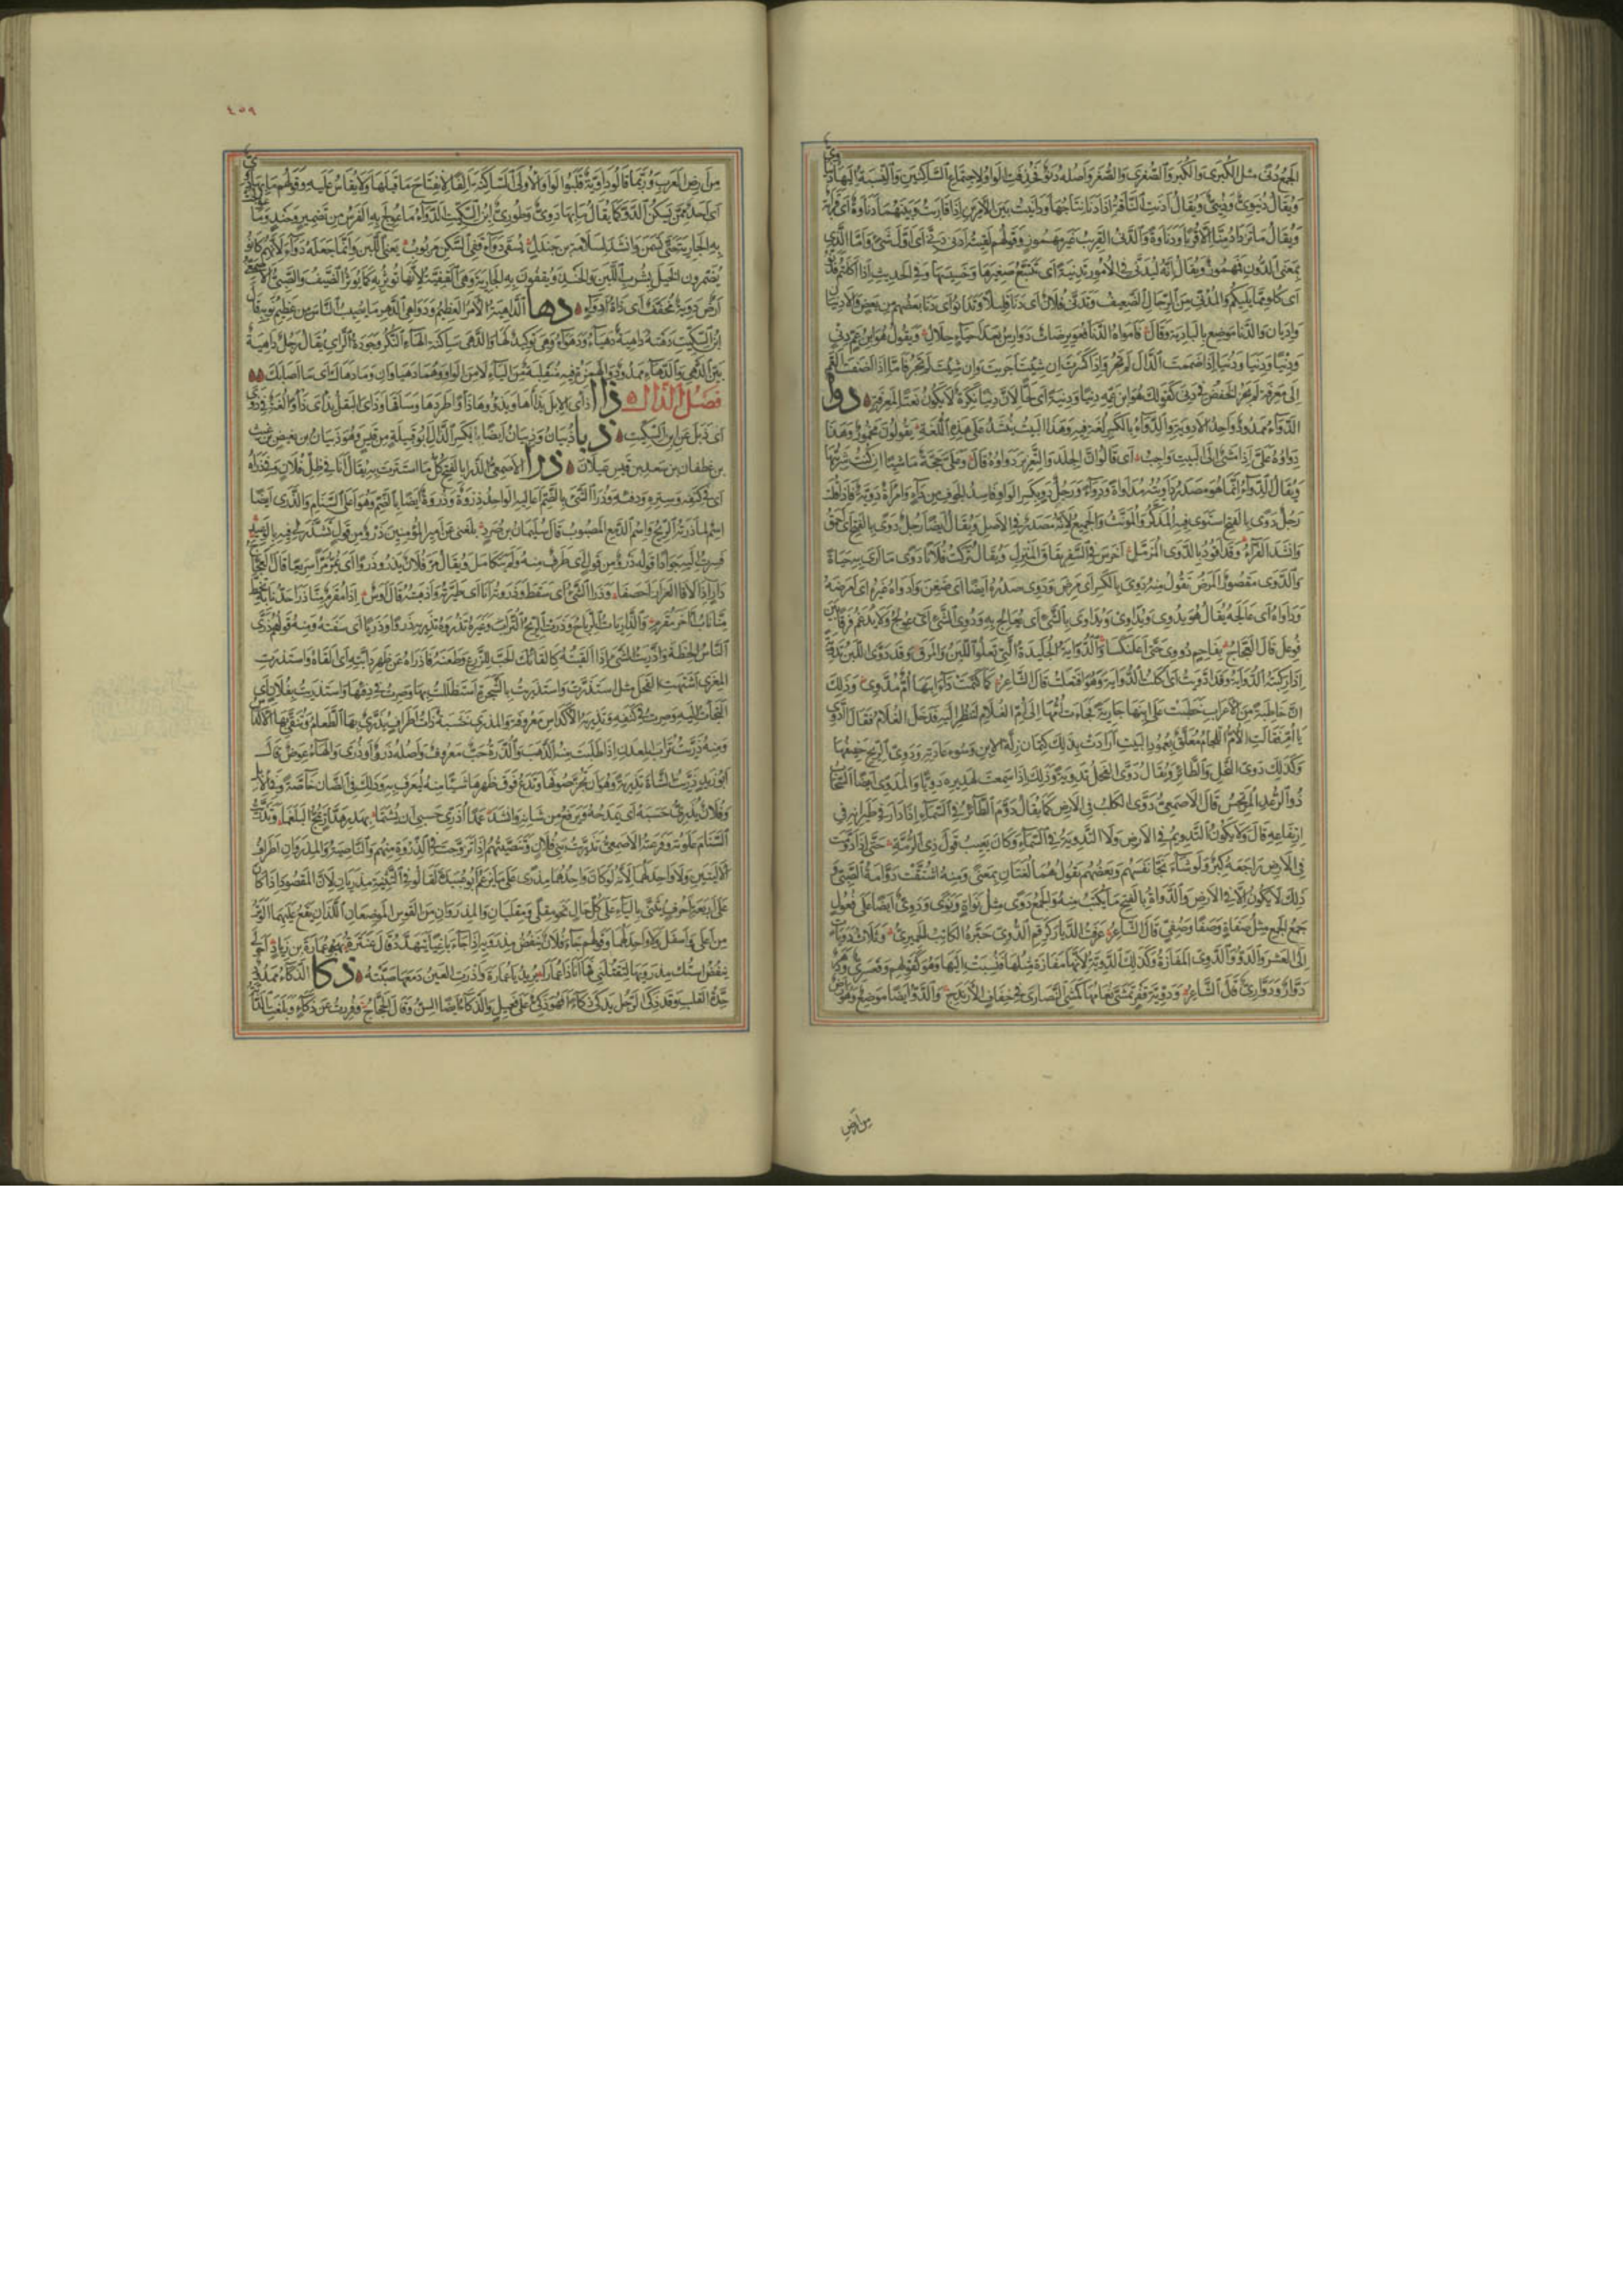 الجمع دنى مثل الكبرى والكبر والصغرى والصغر وأصله دنو فحذفت الواو لاجتماع الساكنين والنسبة اليها
ويقال دنيوى ودنيى ويقال ادنت الناقة اذا دنا نتاجها ودانيت بين الامرين اذا قاربت وبينهما دناوة اى قرابة
ويقال ما تزداد منا الا قربا ودناوة والدنى القريب غير مهموز وقولهم لقيته ادنى دنى اى اول شئ واما الذى
بمعنى الدون فمهموز ويقال انه ليدنى فى الامور تدنية اى يتتبع صغيرها وخسيسها وفى الحديث اذا اكلتم فدنوا
اى كلوا مما يليكم والمدنى من الرجال الضعيف وتدنى فلان اى دنا قليلا وتدانوا اى دنا بعضهم من بعض
والدنا موضع بالبادية وقال فامواه الدنا فعويرضات دوارس بعد احياء حلال ويقول هو ابن عم دنى
ودنيا ودنيا ودنيا اذا ضممت الدال لم تجر واذا كسرت ان شئت اجريت وان شئت لم تجر فاما اذا اضفت العم
الى معرفة لم يجز الخفض فى دنى كقولك هو ابن عمه دنيا ودنية اى لحا لان دنيا نكرة لا يكون نعتا لمعرفة دوا
الدواء ممدود واحد الادوية والدواء بالكسر لغة فيه وهذا البيت ينشد على هذه اللغة يقولون مخمور وهذا
دواؤه على اذا مشى الى البيت واجب اى قالوا ان الجلد والتعزير دواؤه قال وعلى حجة ماشيا ان كنت شربتها
ويقال الدواء انما هو مصدر داويته مداواة ودواء ورجل دو بكسر الواو اى فاسد الجوف من داء وامرأة دوية فاذا قلت
رجل دوى بالفتح استوى فيه المذكر والمؤنث والجمع لانه مصدر فى الاصل ويقال ايضا رجل دوى بالفتح اى احمق
وانشد الفراء وقد اقود بالدوى المزمل اخرس فى السفر بقاق المنزل ويقال تركت فلانا دوى ما ارى به حياة
والدوى مقصور المرض تقول منه دوى بالكسر اى مرض ودوى صدره ايضا اى ضغن وادواه غيره اى امرضه
وداواه اى عالجه يقال هو يدوى ويداوى ويداوى بالشئ اى يعالج به ودووى الشئ اى عولج ولا يدغم فرقا بين
فوعل قال العجاج بفاحم دووى حتى اعلنكسا والدواية الجليدة التى تعلو اللبن والمرق وقد دوى اللبن تدوية
اذا ركبته الدواية وقد ادويت اى اكلت الدواية وهو افتعلت قال الشاعر كما كتمت داء ابنها ام مدوى وذلك
ان خاطبة من الاعراب خطبت على ابنها جارية فجاءت امها الى ام الغلام لتنظر اليه فدخل الغلام فقال ادوى
يا امى فقالت الام اللجام معلق بعمود البيت ارادت بذلك كتمان زلة الابن وسوء عادته ودوى الريح حفيفها
وكذلك دوى النحل والطائر ويقال دوى الفحل تدوية وذلك اذا سمعت لهديره دويا والمدوى ايضا السحاب
ذو الرعد المرتجس قال الاصمعى دوى الكلب فى الارض كما يقال دوم الطائر فى السماء اذا دار فى طيرانه فى
ارتفاعه قال ولا يكون التدويم فى الارض ولا التدوية فى السماء وكان يعيب قول ذى الرمة حتى اذا دومت
فى الارض راجعه كبر ولو شاء نجى نفسه الهرب وبعضهم يقول هما لغتان بمعنى ومنه اشتقت دوامة الصبى
ذلك لا يكون الا فى الارض والدواة بالفتح ما يكتب منه والجمع دوى مثل نواة ونوى ودوى ايضا على فعول
جمع الجمع مثل صفاة وصفا وصفى قال الشاعر عرفت الديار كرقم الدوى حبره الكاتب الحميرى وثلاث دويات
الى العشر والدو والدوى المفازة وكذلك الدوية لانها مفازة مثلها فنسبت اليها وهو كقولهم قعسرى
دوار ودوارى قال الشاعر ودوية قفر تمشى نعامها كمشى النصارى فى خفاف الارندج والدو ايضا موضع وهو
من ارض
٤٥٩
من ارض العرب وربما قالوا داوية قلبوا الواو الاولى الساكنة الفا لانفتاح ما قبلها ولا يقاس عليه وقولهم ما بها دوى
اى احد ممن يسكن الدو كما يقال ما بها دورى وطورى ابن السكيت الدواء ما عولج به الفرس من تضمير وحنذ وما
به الجارية حتى تسمن وانشد لسلامة بن جندل يسقى دواء قفى السكن مربوب يعنى اللبن وانما جعله دواء لانهم كانوا
يضمرون الخيل بشرب اللبن والحنذ ويقفون به الجارية وهى القفية لانها تؤثر به كما يؤثر الضيف والصبى
ارض دوية مخفف اى ذات ادواء دها الداهية الامر العظيم ودواهى الدهر ما يصيب الناس من عظيم نوبه قال
ابن السكيت دهته داهية دهياء ودهواء وهى توكيد لها والدهى ساكنة الهاء النكر وجودة الراى يقال رجل داهية
بين الدهى والدهاء ممدود والهمزة فيه منقلبة من الياء لا من الواو وهما دهياوان وما دهاك اى ما اصابك
فصل الذال ذاا ذأى الابل يذآها ويذؤوها ذأوا طردها وساقها وذأى البقل يذأى ذأوا لغة فى ذوى
اى ذبل عن ابن السكيت ذبا ذبيان وذبيان ايضا بكسر الذال ابو قبيلة من قيس وهو ذبيان بن بغيض بن ريث
بن غطفان بن سعد بن قيس عيلان ذرا الاصمعى الذرا بالفتح كل ما استترت به يقال انا فى ظل فلان وفى ذراه
اى فى كنفه وستره ودفئه وذرا الشئ بالضم اعاليه الواحد ذروة وذروة ايضا بالضم وهو اعلى السنام والذرى ايضا
اسم لما ذرته الريح واسم الدمع المصبوب قال سليمان بن صرد بلغنى عن امير المؤمنين ذرو من قول تشذر لى فيه بالوعيد
فسرت اليه جوادا قوله ذرو من قول اى طرف منه ولم يتكامل ويقال مر فلان يذرو ذروا اى يمر مرا سريعا قال العجاج
دار اذا لاقى العزاز احصفا وذرا الشئ اى سقط وذروته انا اى طيرته واذهبته قال اوس اذا مقرم منا ذرا حد نابه
منا ناب اخر مقرم والذاريات الرياح وذرت الريح التراب وغيره تذروه وتذريه ذروا وذريا اى سفته ومنه قولهم ذرى
الناس الحنطة واذريت الشئ اذا القيته كالقائك الحب للزرع وطعنه فاذراه عن ظهر دابته اى القاه واستذرت
المعزى اشتهت الفحل مثل استدرت واستذريت بالشجرة استظللت بها وصرت فى دفئها واستذريت بفلان اى
التجأت اليه وصرت فى كنفه وتذرية الاكداس معروفة والمذرى خشبة ذات اطراف يذرى بها الطعام وتنقى بها الاكداس
ومنه ذريت تراب المعدن اذا طلبت منه الذهب والذرة حب معروف واصله ذرو او ذرى والهاء عوض قال
ابو زيد ذريت الشاة تذرية وهو ان تجز صوفها وتدع فوق ظهرها شيئا منه لتعرف به وذلك فى الضان خاصة وفى الابل
وفلان يذرى حسبه اى يمدحه ويرفع من شانه وانشد عمدا اذرى حسبى ان يشتما بهدر هدار يمج البلغما وتذريت
السنام علوته وفرعته الاصمعى تذريت بنى فلان وتنصيتهم اذا تزوجت فى الذروة منهم والناصية والمذروان اطراف
الاليتين ولا واحد لهما لانه لو كان واحدهما مذرى على ما يزعم ابو عبيدة لقالوا فى التثنية مذريان لان المقصور اذا كان
على اربعة احرف يثنى بالياء على كل حال نحو مقلى ومقليان والمذروان من القوس الموضعان اللذان يقع عليهما الوتر
من اعلى واسفل ولا واحد لهما وقولهم جاء فلان ينفض مذرويه اذا جاء باغيا يتهدد قال عنترة يهجو عمارة بن زياد احولى
تنفض استك مذرويها لتقتلنى فها انا ذا عمارا يريد يا عمارة واذرت العين دمعها صبته ذكا الذكاء ممدود
حدة القلب وقد ذكى الرجل يذكى ذكاء فهو ذكى على فعيل والذكاء ايضا السن وقال الحجاج فررت عن ذكاء وبلغت الدابة